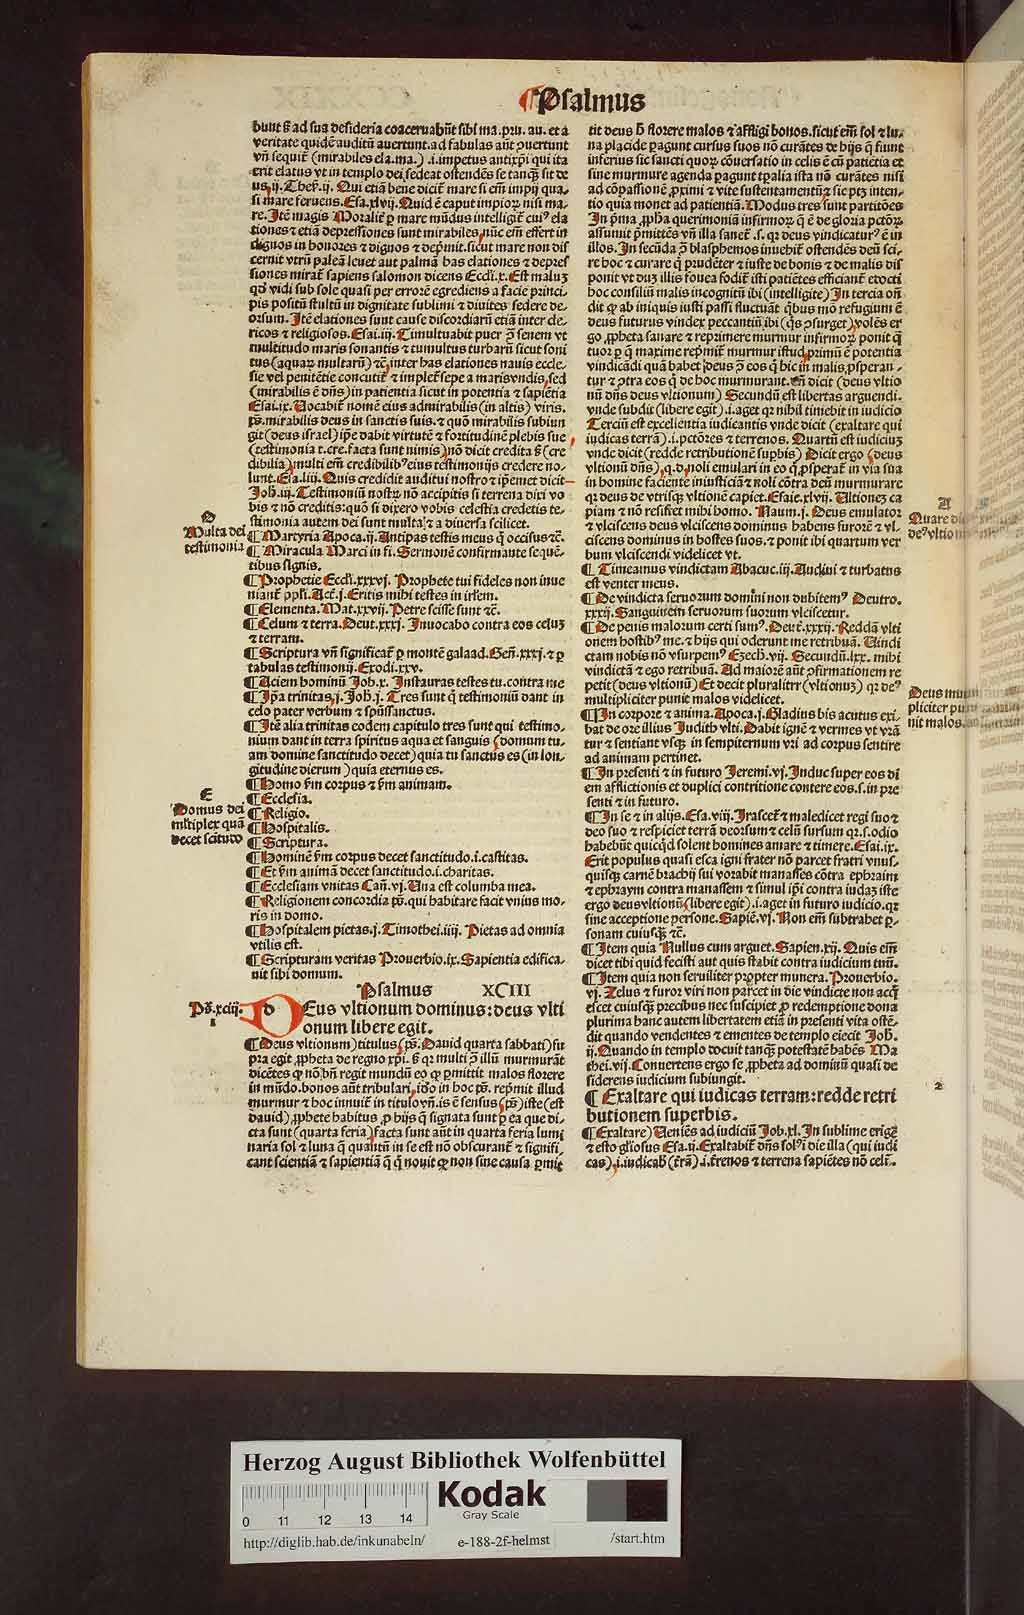 ¶ Psalmus
bunt s̄ ad sua desideria coaceruabūt sibi ma. pru. au. et a
veritate quidē auditū auertunt. ad fabulas aūt ꝯuertunt
vn̄ sequit̄ (mirabiles ela. ma.) .i. impetus antixp̄i qui ita
erit elatus vt in templo dei sedeat ostendēs se tanqȝ sit de
us. ij. Thes̄. ij. Qui etiā bene dicit̄ mare si em̄ impij qua
si mare feruens. Esa. xlvij. Quid ē caput impioꝝ nisi ma-
re. Itē magis Moralit̄ ꝑ mare mūdus intelligit̄ cuiꝰ ela
tiones ⁊ etiā depressiones sunt mirabiles, nūc em̄ effert in
dignos in honores ⁊ dignos ⁊ dep̄mit. sicut mare non dis
cernit vtrū paleā leuet aut palmā has elationes ⁊ depres
siones mirat̄ sapiens salomon dicens Eccl̄i. x. Est maluȝ
qd̄ vidi sub sole quasi per errorē egrediens a facie princi-
pis positū stultū in dignitate sublimi ⁊ diuites sedere de-
orsum. Itē elationes sunt cause discordiarū etiā inter cle-
ricos ⁊ religiosos. Esai. iij. Tumultuabit puer ꝯ senem vt
multitudo maris sonantis ⁊ tumultus turbarū sicut soni
tus (aquaꝝ multarū) ⁊c̄, inter has elationes nauis eccle-
sie vel penitētie concutit̄ ⁊ implet̄ sepe a maris vndis, sed
(mirabilis ē dn̄s) in patientia sicut in potentia ⁊ sapiētia
Esai. ix. Vocabit̄ nomē eius admirabilis (in altis) viris.
ps̄. mirabilis deus in sanctis suis. ⁊ quō mirabilis subiun
git (deus israel) ip̄e dabit virtutē ⁊ fortitudinē plebis sue
(testimonia t. cre. facta sunt nimis), nō dicit credita s̄ (cre
dibilia), multi em̄ credibilibꝰ eius testimonijs credere no-
lunt. Esa. liij. Quis credidit auditui nostro ⁊ ip̄emet dicit
Joh̄. iij. Testimoniū nostꝝ nō accipitis si terrena dixi vo
bis ⁊ nō creditis: quō si dixero vobis celestia credetis te-
stimonia autem dei sunt multa: ⁊ a diuersa scilicet.
D
Multa dei
testimonia
¶ Martyria Apoca. ij. Antipas testis meus q̄ occisus ⁊c̄.
¶ Miracula Marci in fi. Sermonē confirmante sequē-
tibus signis.
¶ Prophetie Eccl̄i. xxxvj. Prophete tui fideles non inue
niant̄ ꝓpl̄i. Act̄. j. Eritis mihi testes in irl̄em.
¶ Elementa. Mat. xxvij. Petre scisse sunt ⁊c̄.
¶ Celum ⁊ terra. Deut. xxxj. Inuocabo contra eos celuȝ
⁊ terram.
¶ Scriptura vn̄ significat̄ ꝑ montē galaad. Gen̄. xxxj. ⁊ ꝑ
tabulas testimonij. Exodi. xxv.
¶ Aciem hominū Job. x. Instauras testes tu. contra me
¶ Ip̄a trinitas, j. Joh̄. j. Tres sunt q̄ testimoniū dant in
celo pater verbum ⁊ spūssanctus.
¶ Itē alia trinitas eodem capitulo tres sunt qui testimo-
nium dant in terra spiritus aqua et sanguis (domum tu-
am domine sanctitudo decet) quia tu sanctus es (in lon-
gitudine dierum) quia eternus es.
E
Domus dei
mltiplex quā
decet scitudo
¶ Homo s̄m corpus ⁊ s̄m animam.
¶ Ecclesia.
¶ Religio.
¶ Hospitalis.
¶ Scriptura.
¶ Hominē s̄m corpus decet sanctitudo. i. castitas.
¶ Et s̄m animā decet sanctitudo. i. charitas.
¶ Ecclesiam vnitas Can̄. vj. Vna est columba mea.
¶ Religionem concordia ps̄. qui habitare facit vnius mo-
ris in domo.
¶ Hospitalem pietas. j. Timothei. iiij. Pietas ad omnia
vtilis est.
¶ Scripturam veritas Prouerbio. ix. Sapientia edifica-
uit sibi domum.
¶ Psalmus XCIII
Ps̄. xciij.
1
DEus vltionum dominus: deus vlti
onum libere egit.
¶ Deus vltionum) titulus (ps̄. Dauid quarta sabbati) su
pra egit ꝓpheta de regno xp̄i. s̄ qꝛ multi ꝯ illū murmurāt
dicētes ꝙ nō bn̄ regit mundū eo ꝙ ꝑmittit malos florere
in mūdo. bonos aūt tribulari, iō in hoc ps̄. rep̄mit illud
murmur ⁊ hoc innuit̄ in titulo vn̄. is ē sensus (ps̄) iste (est
dauid) ꝓphete habitus ꝓ hijs q̄ signata sunt ꝑ ea que di-
cta sunt (quarta feria) facta sunt aūt in quarta feria lumi
naria sol ⁊ luna q̄ quantū in se est nō obscurant̄ ⁊ signifi-
cant scientiā ⁊ sapientiā q̄ q̄ nouit ꝙ non sine causa ꝑmit
tit deus h̄ florere malos ⁊ affligi bonos. sicut em̄ sol ⁊ lu-
na placide ꝑagunt cursus suos nō curātes de hijs q̄ fiunt
inferius sic sancti quoꝝ cōuersatio in celis ē cū patientia et
sine murmure agenda ꝑagunt tꝑalia ista nō curātes nisi
ad cōpassionē ꝓximi ⁊ vite sustentamentū ⁊ sic ptȝ inten-
tio quia monet ad patientiā. Modus tres sunt partitōes
In p̄ma, ꝓph̄a querimoniā infirmoꝝ q̄ ē de gloria pctōꝝ
assumit ꝑmittēs vn̄ illa sanet̄ .s. qꝛ deus vindicaturꝰ ē in
illos. In secūda ꝯ blasphemos inuehit̄ ostendēs deū sci-
re hoc ⁊ curare q̄ prudēter ⁊ iuste de bonis ⁊ de malis dis
ponit vt duȝ illis fouea fodit̄ isti patiētes efficiant̄ et octi
hoc consiliū malis incognitū ibi (intelligite) In tercia on̄
dit ꝙ ab iniquis iusti passi fluctuāt qb̄us mō refugium ē
deus futurus vindex peccantiū ibi (qs̄ ꝯsurget), volēs er
go ꝓpheta sanare ⁊ reprimere murmur infirmoꝝ ponit q̄
tuor ꝑ q̄ maxime rep̄mit̄ murmur istud, primū ē potentia
vindicādi quā habet deus ꝯ eos q̄ hic in malis ꝓsperan-
tur ⁊ ꝯtra eos q̄ de hoc murmurant. vn̄ dicit (deus vltio
nū dn̄s deus vltionum) Secundū est libertas arguendi.
vnde subdit (libere egit) .i. aget qꝛ nihil timebit in iudicio
Terciū est excellentia iudicantis vnde dicit (exaltare qui
iudicas terrā) .i. pctōres ⁊ terrenos. Quartū est iudiciuȝ
vnde dicit (redde retributionē suꝑbis) Dicit ergo (deus
vltionū dn̄s), q. d. noli emulari in eo q̄ ꝓsperat̄ in via sua
in homine faciente iniusticiā ⁊ noli cōtra deū murmurare
qꝛ deus de vtrisqȝ vltionē capiet. Esaie. xlvij. Vltionēȝ ca
piam ⁊ nō resistet mihi homo. Naum. j. Deus emulator
⁊ vlciscens deus vlciscens dominus habens furorē ⁊ vl-
ciscens dominus in hostes suos. ⁊ ponit ibi quartum ver
bum vlciscendi videlicet vt.
¶ Timeamus vindictam Abacuc. iij. Audiui ⁊ turbatus
est venter meus.
¶ De vindicta seruorum domini non dubitemꝰ Deutro.
xxxij. Sanguinem seruorum suorum vlciscetur.
¶ De penis malorum certi sumꝰ. Deut̄. xxxij. Reddā vlti
onem hostibꝰ me. ⁊ hijs qui oderunt me retribuā. Vindi
ctam nobis nō vsurpemꝰ Ezech̄. vij. Secundū. lxx. mihi
vindictā ⁊ ego retribuā. Ad maiorē aūt ꝯfirmationem re
petit (deus vltionū) Et decit pluralitrr (vltionuȝ) qꝛ deꝰ
multipliciter punit malos videlicet.
¶ In corpore ⁊ anima. Apoca. j. Gladius bis acutus exi-
bat de ore illius Judith vlti. Dabit ignē ⁊ vermes vt vrā
tur ⁊ sentiant vsqȝ in sempiternum vri ad corpus sentire
ad animam pertinet.
¶ In presenti ⁊ in futuro Jeremi. vj. Induc super eos di
em afflictionis et duplici contritione contere eos. s. in pre
senti ⁊ in futuro.
¶ In se ⁊ in alijs. Esa. viij. Irascet̄ ⁊ maledicet regi suo ⁊
deo suo ⁊ respiciet terrā deorsum ⁊ celū sursum qꝛ. s. odio
habebūt quicqd̄ solent homines amare ⁊ timere. Esai. ix.
Erit populus quasi esca igni frater nō parcet fratri vnus-
quisqȝ carnē brachij sui vorabit manasses cōtra ephraim
⁊ ephraym contra manassem ⁊ simul ip̄i cōtra iudaȝ iste
ergo deus vltionū (libere egit) .i. aget in futuro iudicio. qꝛ
sine acceptione persone. Sapiē. vj. Non em̄ subtrahet ꝑ-
sonam cuiusqȝ ⁊c̄.
¶ Item quia Nullus eum arguet. Sapien. xij. Quis em̄
dicet tibi quid fecisti aut quis stabit contra iudicium tuū.
¶ Item quia non seruiliter propter munera. Prouerbio.
vj. Zelus ⁊ furor viri non parcet in die vindicte non acq̄
escet cuiusqȝ precibus nec suscipiet ꝓ redemptione dona
plurima hanc autem libertatem etiā in presenti vita ostē-
dit quando vendentes ⁊ ementes de templo eiecit Joh̄.
ij. Quando in templo docuit tanqȝ potestatē habēs Ma
thei. vij. Conuertens ergo se ꝓpheta ad dominū quasi de
siderens iudicium subiungit.
2
¶ Exaltare qui iudicas terram: redde retri
butionem superbis.
¶ (Exaltare) Veniēs ad iudiciū Job. xl. In sublime erigē
⁊ esto gl̄iosus Esa. ij. Exaltabit̄ dn̄s solꝰ i die illa (qui iudi
cas), i. iudicab̄ (t̄rā) .i. t̄renos ⁊ terrena sapiētes nō celt̄.
A
Quare di
deꝰ vltio
Deus mult
pliciter pu
nit malos.
Herzog August Bibliothek Wolfenbüttel
0 11 12 13 14
Kodak
Gray Scale
http://diglib.hab.de/inkunabeln/ e-188-2f-helmst /start.htm